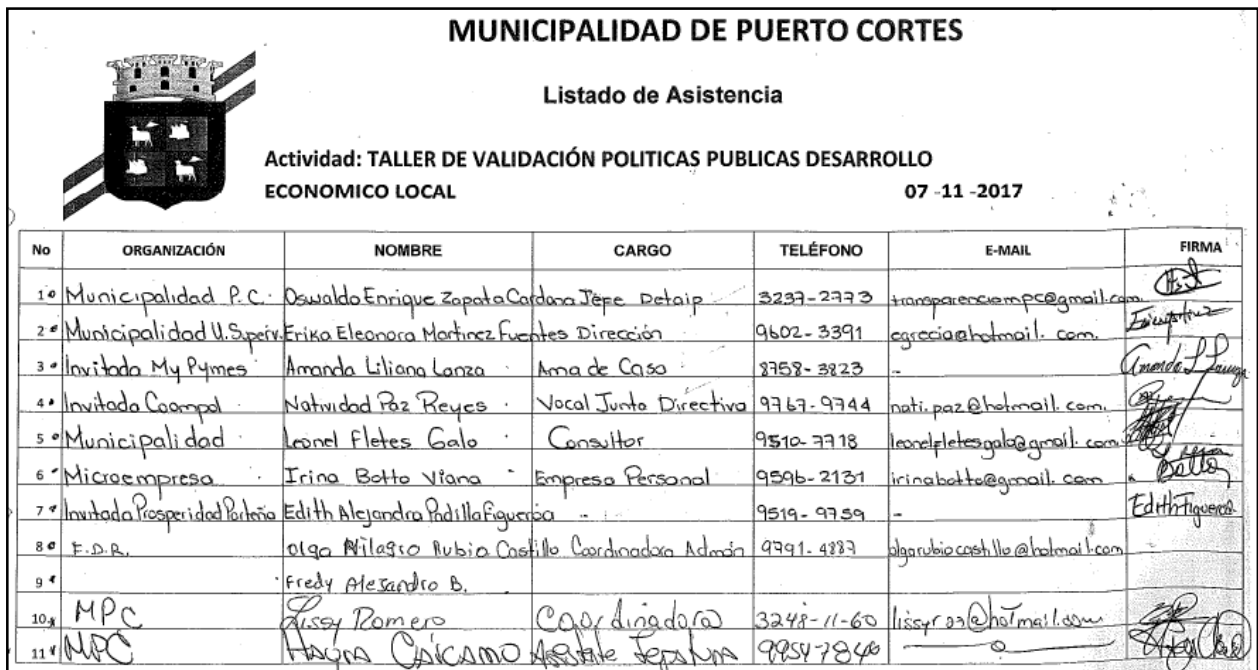 MUNICIPALIDAD DE PUERTO CORTES
Listado de Asistencia
Actividad: TALLER DE VALIDACIÓN POLITICAS PUBLICAS DESARROLLO
ECONOMICO LOCAL 07 -11 -2017
No ORGANIZACIÓN NOMBRE CARGO TELÉFONO E-MAIL FIRMA
1 Municipalidad P.C. Oswaldo Enrique Zapata Cardona Jefe Detaip 3237-2773 transparenciampc@gmail.com
2 Municipalidad Erika Eleonora Martinez Fuentes Dirección 9602-3391 egrecia@hotmail.com.
3 Invitada My Pymes Amanda Liliana Lanza Ama de Casa 8758-3823 -
4 Invitada Coompol Natividad Paz Reyes Vocal Junta Directiva 9767-9744 nati.paz@hotmail.com.
5 Municipalidad Leonel Fletes Galo Consultor 9510-7718 leonelfletesgalo@gmail.com
6 Microempresa Irina Botto Viana Empresa Personal 9596-2131 irinabotto@gmail.com Botto
7 Invitada Prosperidad Porteña Edith Alejandra Padilla Figueroa - 9519-9759 - Edith Figueroa
8 F.D.R. Olga Milagro Rubio Castillo Coordinadora Admón 9791-4887 olgarubiocastillo@hotmail.com
9 Fredy Alejandro B.
10 MPC Lissy Romero Coordinadora 3248-11-60
11 MPC 99547840